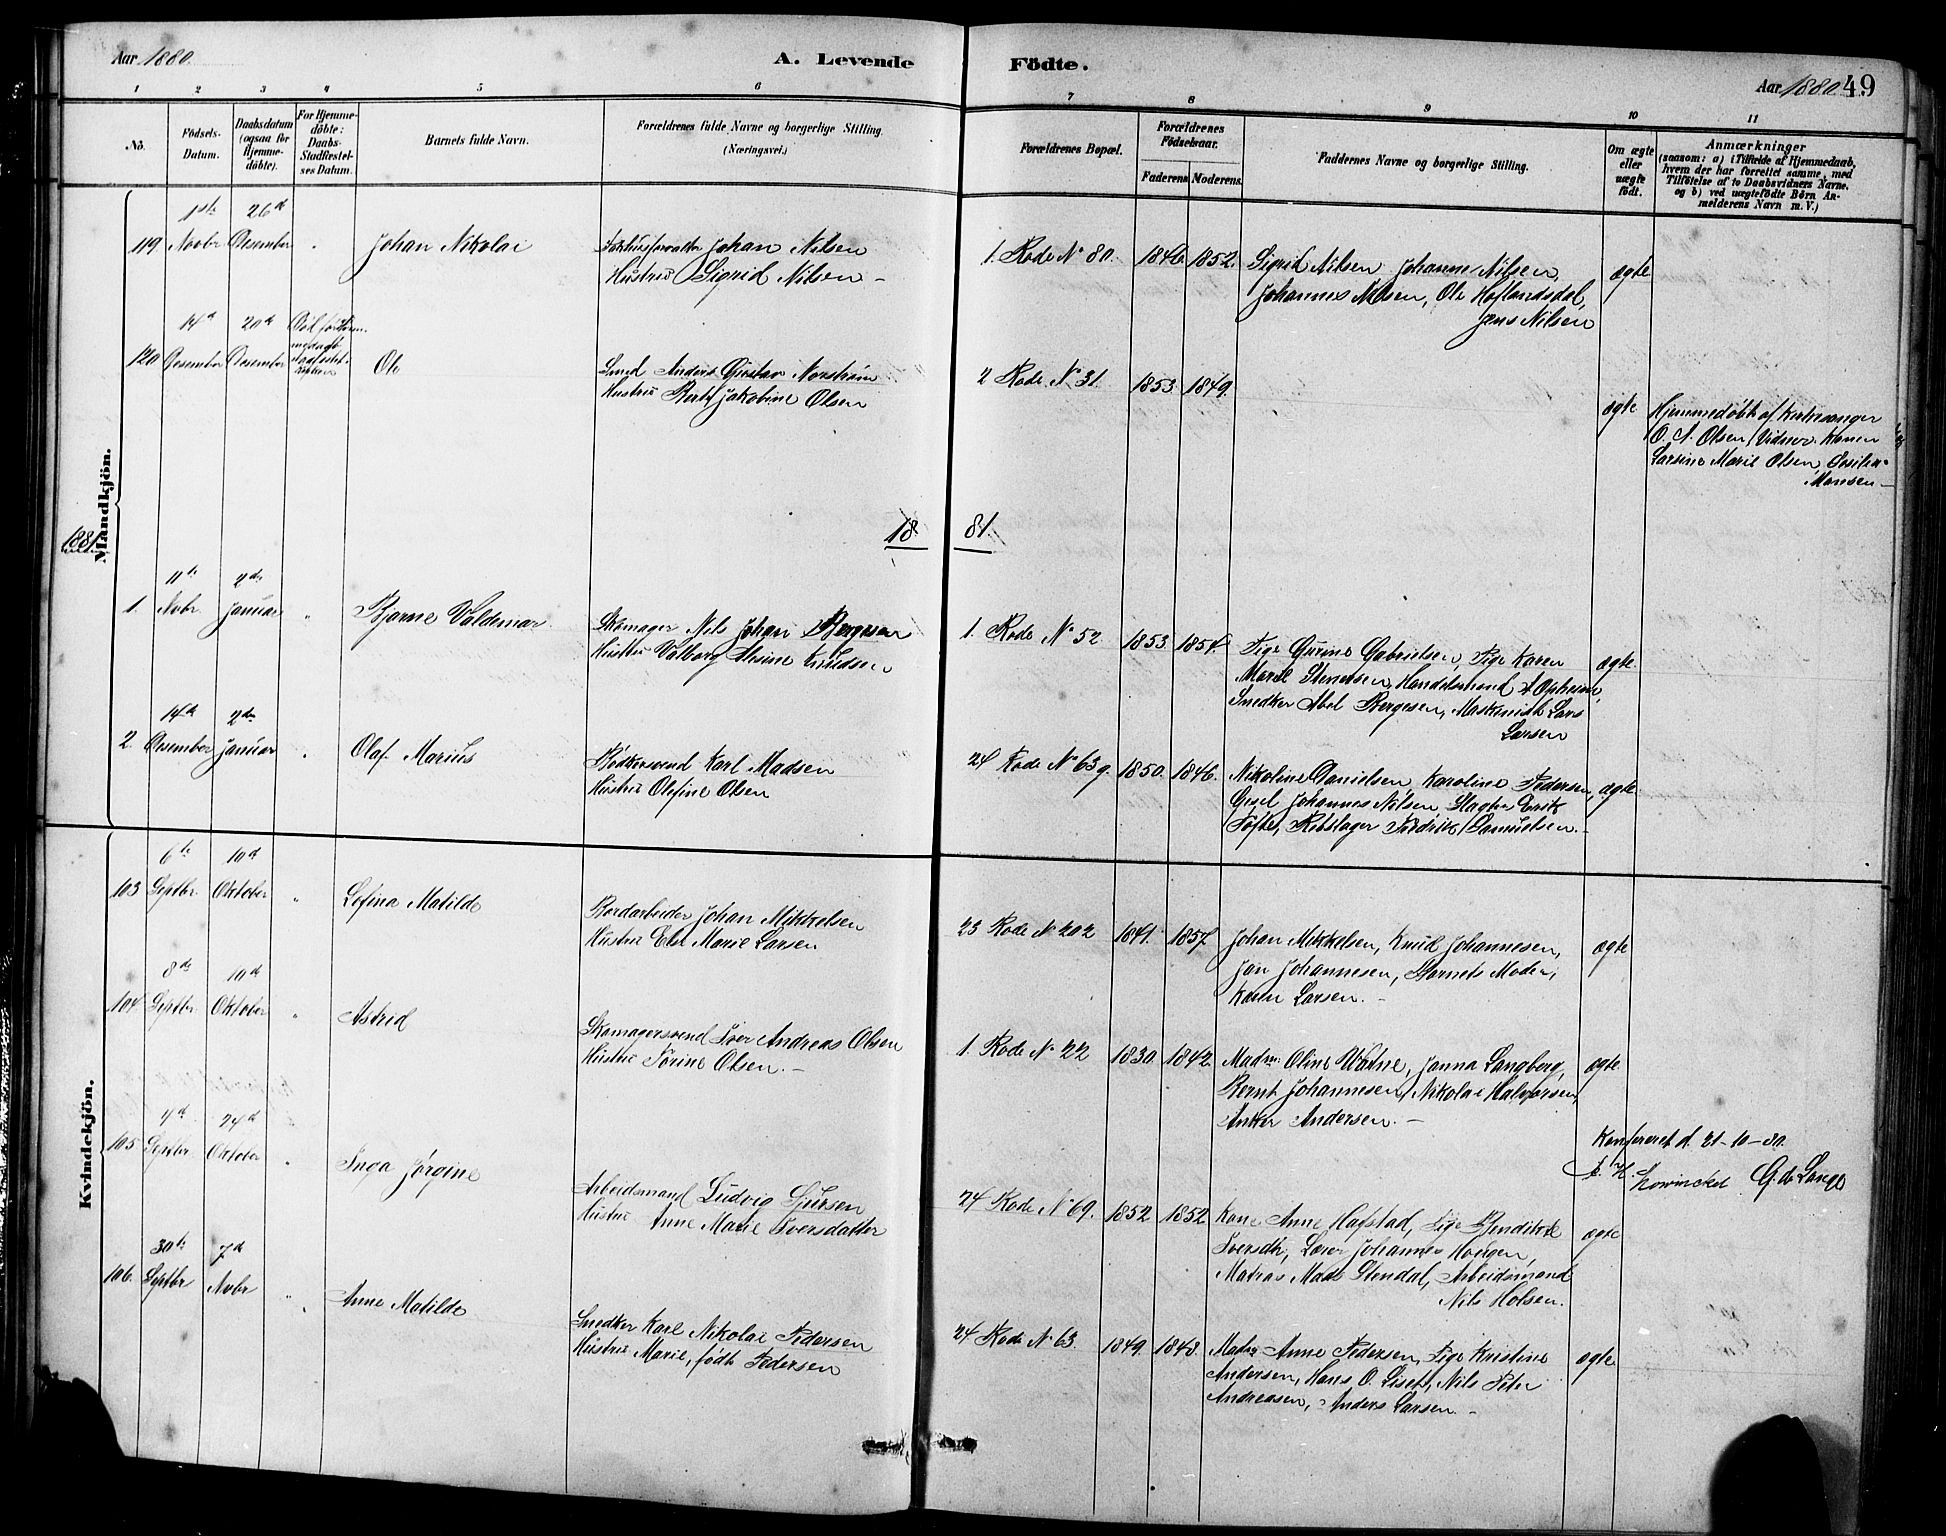 Aar 1880.
A. Levende Födte.
Aar 1880. 49
1 2 3 4 5 6 7 8 9 10 11
No.
Födsels-Datum.
Daabsdatum (ogsaa for Hjemme-döbte).
For Hjemme-döbte: Daabs-Stadfestel-ses Datum.
Barnets fulde Navn.
Forældrenes fulde Navne og borgerlige Stilling.
(Næringsvei.)
Forældrenes Bopæl.
Forældrenes Födselsaar.
Faderens Moderens.
Faddernes Navne og borgerlige Stilling.
Om ægte eller uægte födt.
Anmærkninger
(saasom: a) i Tilfælde af Hjemmedaab,
hvem der har forrettet samme, med
Tilföielse af to Daabsvidners Navne.
og b) ved uægtefödte Börn An-
melderens Navn m. V.)
Mandkjön.
119. 1ste Novbr 26d Desember " Johan Nikolai
Johan Nilsen
Hustru Sigrid Nilsen -
1. Rode No 80. 1846 1852.
Sigrid Nilsen Johanne Nilsen,
Johannes Nilsen, Ole Hoflandsdal,
Jens Nilsen
ægte
120 14d Desember 20d Desember
Ole
Smed Anders Gustav Norstrøm
Hustru Berthe Jakobine Olsen
2 Rode No 31. 1853 1849.
ægte
Hjemmedøbt af Kirkesanger
O. A. Olsen Vidner: Konen
Larsine Marie Olsen,
Mansen -
1881.
18 81.
1. 11te Nvbr. 2den Januar " Bjarne Valdemar
Skomager Nils Johan Bergesen
Hustru Valborg Knudsen
1. Rode No 52 1853 1854.
Pige Gurine Gabrielsen, Pige Karen
Marie Stenersen, Handelsmand A Opheim,
Snedker Abel Bergesen, Maskinist Lars
Larsen
ægte.
2. 14d Desember 2den Januar " Olaf Marius
Bødkersvend Karl Madsen
Hustru Olefine Olsen
24 Rode No 63g. 1850. 1846.
Nikoline Danielsen, Karoline Pedersen,
Gesel Johannes Nilsen Slagter Erik
Tofte, Rebslager Fredrik Samuelsen. -
ægte
Kvindekjön.
103 6te Septbr. 10d Oktober " Sofina Matilde
Bordarbeider Johan Mikkelsen
Hustru Else Marie Larsen
23 Rode No 202 1849. 1857
Johan Mikkelsen, Knud Johannesen,
Jan Johannesen, Barnets Moder,
Karen Larsen. -
ægte
104 8de Septbr. 10d Oktober " Astrid
Skomagersvend Iver Andreas Olsen
Hustru Torine Olsen. -
1. Rode No 22 1830. 1842.
Madm: Oline Watne, Janna Langberg,
Bernt Johannesen, Nikolai Halvorsen,
Anker Andersen. -
ægte
Konfereret d. 21-10-80.
Lowinckel G. de Lange
105 4d Septbr. 24d Oktober " Inga Jørgine
Arbeidsmand Ludvig Sjursen
Hustru Anne Marie Iversdatter
24 Rode No 69. 1852 1852
Kone Anne Hafstad, Pige Bendikte
Iversdtr, Lærer Johannes Hveigen,
Matros Mads Stendal, Arbeidsmand
Nils Holsen.
ægte
106. 30te Septbr 7d Nvbr " Anne Matilde
Snedker Karl Nikolai Pedersen
Hustru Marie, født Pedersen
24 Rode No 63. 1849. 1848.
Anne Pedersen, Pige Kristine
Andersen, Hans O. Liset, Nils Peter
Andreasen, Anders Larsen. -
ægte